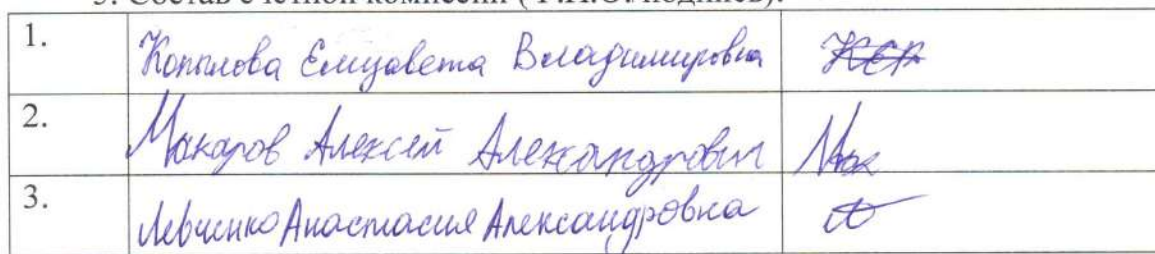 5. Состав счетной комиссии ( Ф.И.О./подпись):
1. Копылова Елизавета Владимировна
2. Макаров Алексей Александрович Мак
3. Левченко Анастасия Александровна